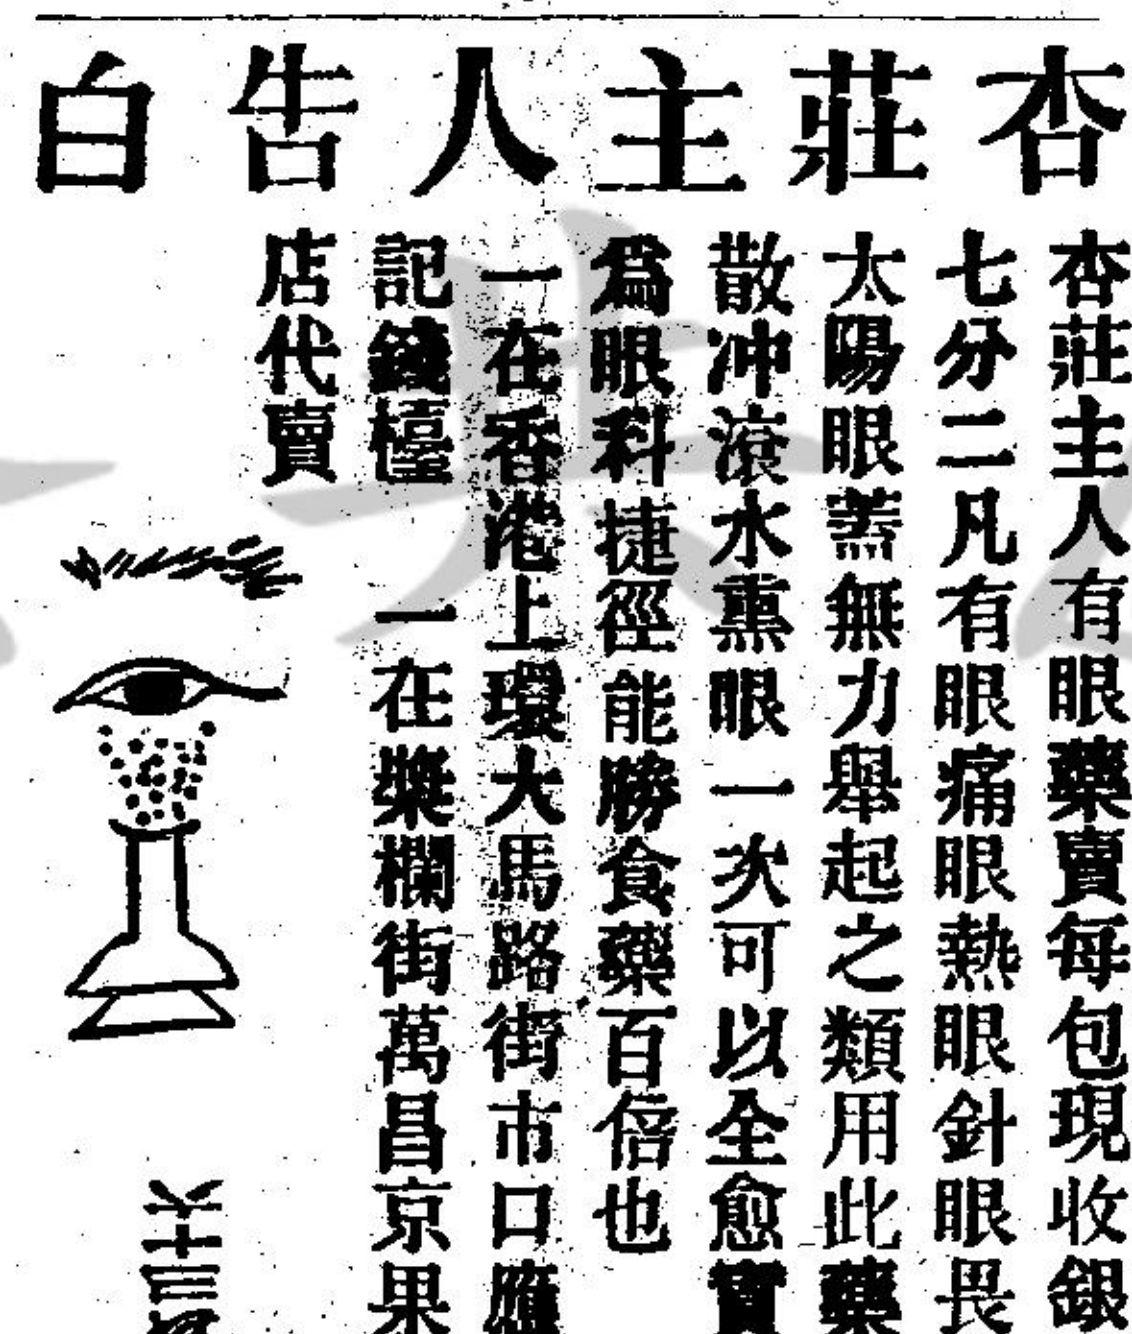 杏莊主人告白
杏莊主人有眼藥賣每包現收銀
七分二凡有眼痛眼熱眼針眼畏
太陽眼蓋無力舉起之類用此藥
散冲滾水熏眼一次可以全愈實
爲眼科捷徑能勝食藥百倍也
一在香港上環大馬路街市口應
記錢檯
一在槳欄街萬昌京果
店代賣